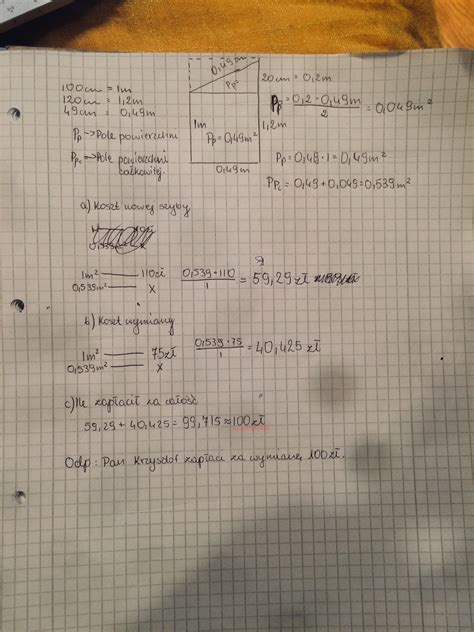 100cm = 1m
120cm = 1,2m
49cm = 0,49m
Pp → Pole powierzchni
Ppc → Pole powierzchni całkowitej.
0,49m
Pp²
1m
Pp = 0,49m²
0,49m
20cm = 0,2m
Pp = 0,2 · 0,49m / 2 = 0,049m²
1,2m
Pp = 0,49 · 1 = 0,49m²
PPc = 0,49 + 0,049 = 0,539m²
a) Koszt nowej szyby
1m² — 110zł
0,539m² — x
0,539 · 110 / 1 = 59,29 zł
b) Koszt wymiany
1m² — 75zł
0,539m² — x
0,539 · 75 / 1 = 40,425 zł
c) Ile zapłacił za całość
59,29 + 40,425 = 99,715 ≈ 100zł
Odp: Pan Krzysztof zapłaci za wymianę 100zł.